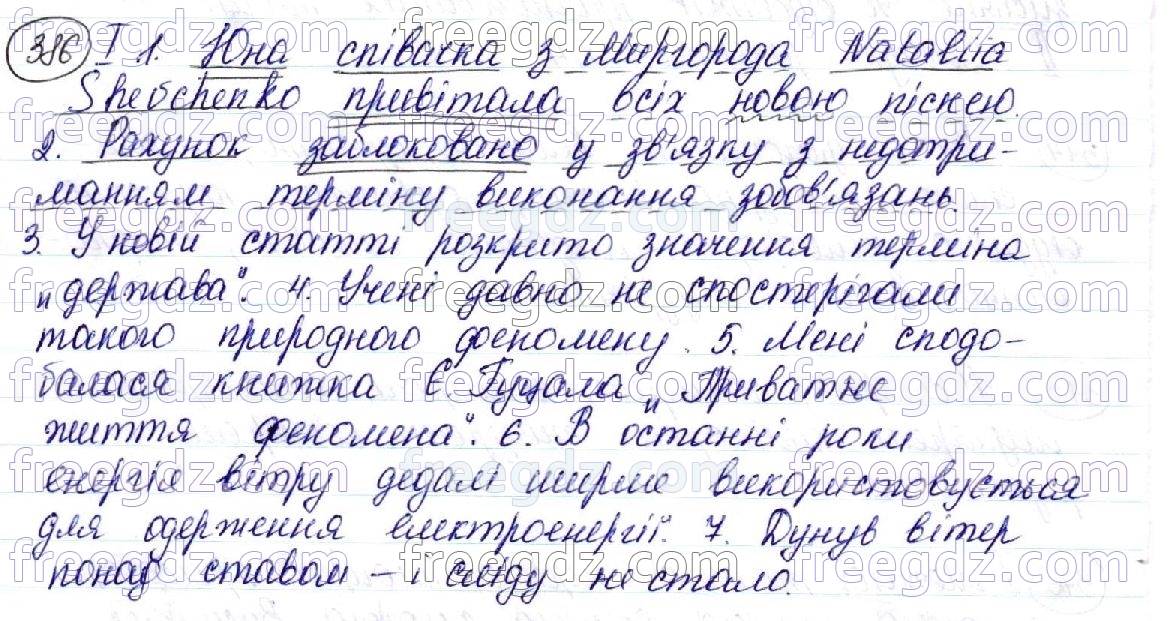 386 І 1. Юна співачка з Миргорода Nataliia
Shevchenko привітала всіх новою піснею.
2. Рахунок заблоковано у зв'язку з недотри-
манням терміну виконання зобов'язань.
3. У новій статті розкрито значення терміна
„держава". 4. Учені давно не спостерігали
такого природного феномену. 5. Мені сподо-
балася книжка Є. Гуцала „Приватне
життя феномена". 6. В останні роки
енергія вітру дедалі ширше використовується
для одерження електроенергії. 7. Дунув вітер
понад ставом – і сліду не стало.